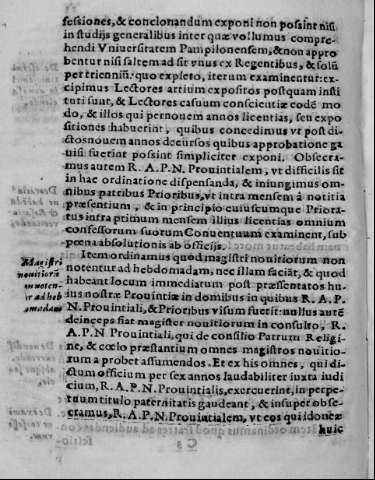 fessiones, & concionandum exponi non possint nisi
in studijs generalibus inter quæ vollumus compre-
hendi Vniuersitatem Pampilonensem, & non appro
bentur nisi saltem ad sit vnus ex Regentibus, & solũ
per trienniũ: quo expleto, iterum examinentur: ex-
cipimus Lectores artium expositos postquam insti
tuti sunt, & Lectores casuum conscientiæ codē mo
do, & illos qui per nouem annos licentias, seu expo
sitiones habuerint, quibus concedimus vt post di-
ctos nouem annos decursos quibus approbatione ga
uisi fuerint possint simpliciter exponi. Obsecra-
mus autem R. A. P. N. Prouintialem, vt difficilis sit
in hac ordinatione dispensanda, & iniungimus om-
nibus patribus Prioribus, vt intra mensem à notitia
præsentium, & in principio cuiuscumque Priora-
tus infra primum mensem illius licentias omnium
confessorum suorum Conuentuum examinent, sub
pœna absolutionis ab officijs.
Item ordinamus quod magistri nouitiorum non
notentur ad hebdomadam, nec illam faciāt, & quod
habeant locum immediatum post præsentatos hu-
ius nostræ Prouintiæ in domibus in quibus R. A. P.
N. Prouintiali, & Prioribus visum fuerit: nullus autē
deinceps fiat magister nouitiorum in consulto, R.
A. P. N. Prouintiali, qui de consilio Patrum Religio
ne, & cœlo præsantium omnes magistros nouitio-
rum a probet assumendos. Et ex his omnes, qui di-
ctum officium per sex annos laudabiliter iuxta iudi
cium, R. A. P. N. Prouintialis, exercuerint, in perpe-
tuum titulo paternitatis gaudeant, & insuper obse-
cramus, R. A. P. N. Prouintialem, vt eos qui idoneæ
huic
Magistri
nouitiorũ
nō noten-
tur ad heb
domadam